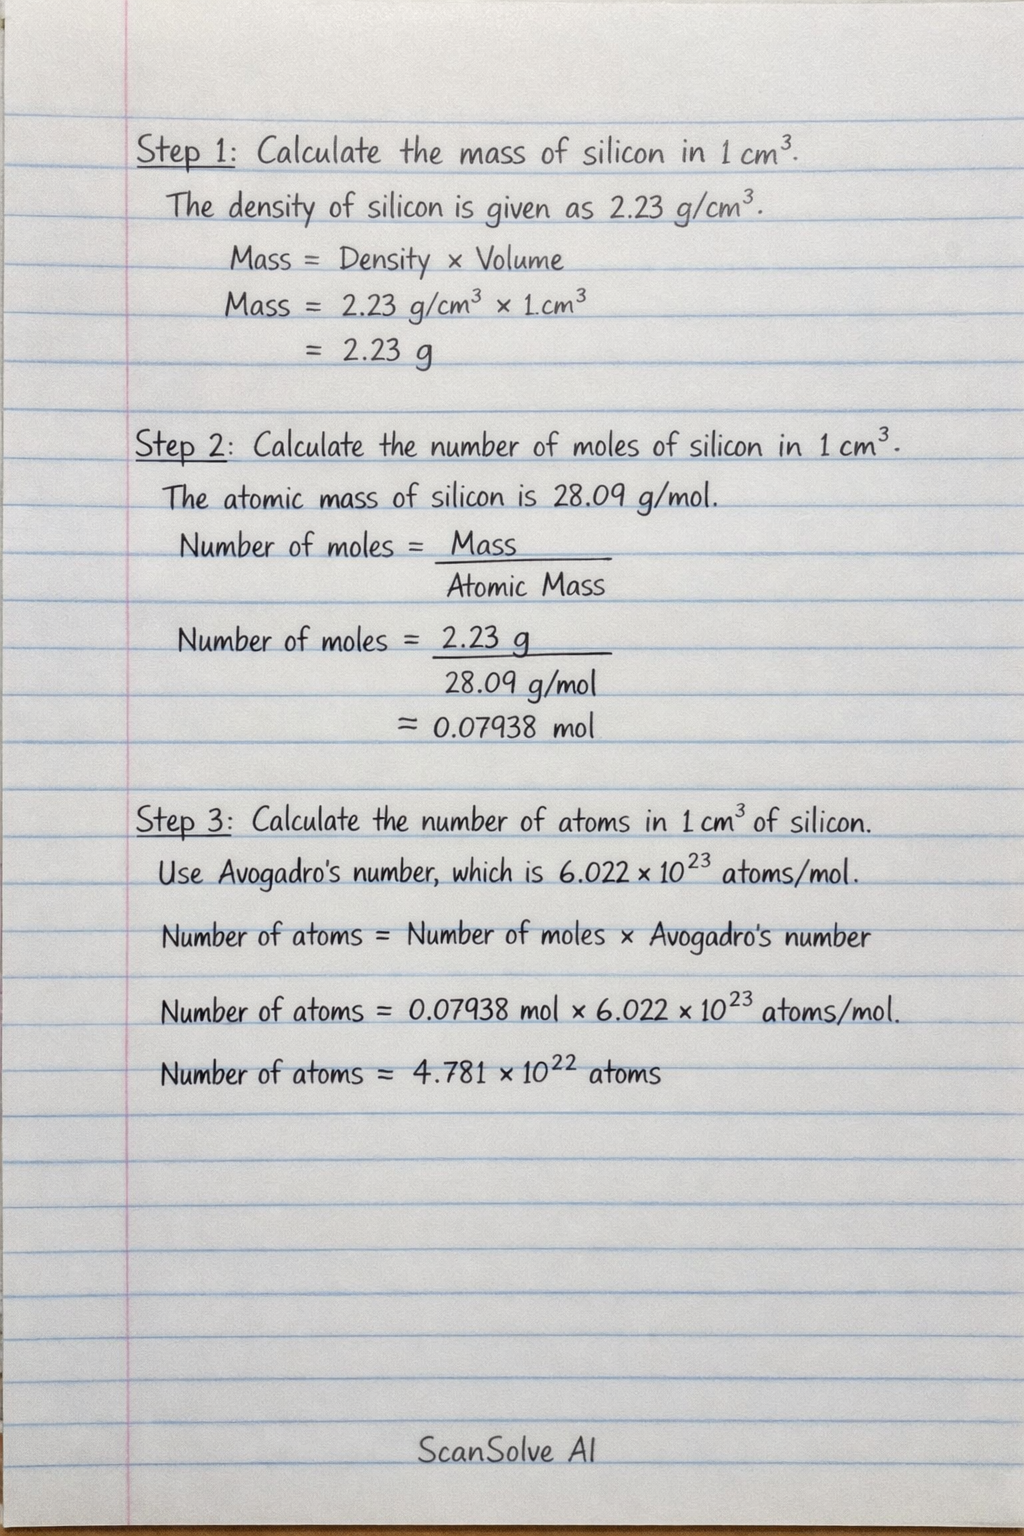 Step 1: Calculate the mass of silicon in 1 cm³.
The density of silicon is given as 2.23 g/cm³.
Mass = Density × Volume
Mass = 2.23 g/cm³ × 1.cm³
= 2.23 g
Step 2: Calculate the number of moles of silicon in 1 cm³.
The atomic mass of silicon is 28.09 g/mol.
Number of moles = Mass
Atomic Mass
Number of moles = 2.23 g
28.09 g/mol
≈ 0.07938 mol
Step 3: Calculate the number of atoms in 1 cm³ of silicon.
Use Avogadro's number, which is 6.022 × 10²³ atoms/mol.
Number of atoms = Number of moles × Avogadro's number
Number of atoms = 0.07938 mol × 6.022 × 10²³ atoms/mol.
Number of atoms = 4.781 × 10²² atoms
ScanSolve AI